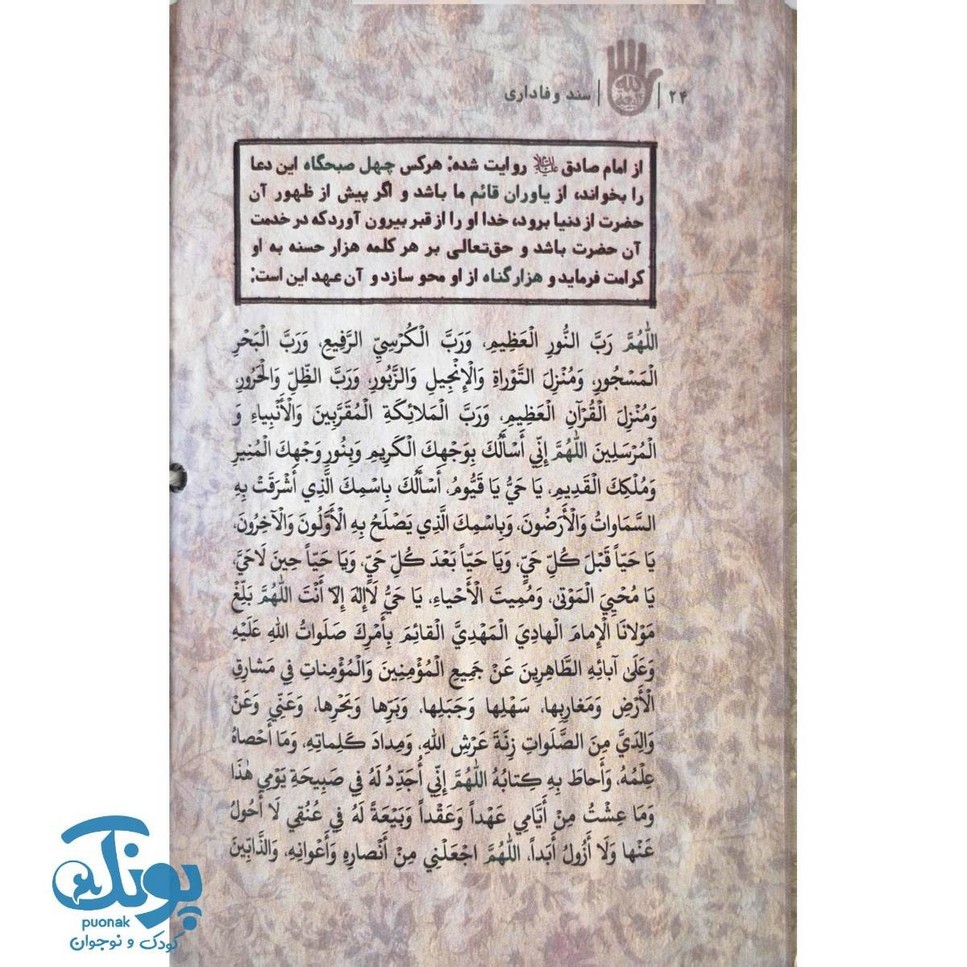 ۲۴ | سند وفاداری
از امام صادق علیه‌السلام روایت شده: هرکس چهل صبحگاه این دعا
را بخواند، از یاوران قائم ما باشد و اگر پیش از ظهور آن
حضرت از دنیا برود، خدا او را از قبر بیرون آورد که در خدمت
آن حضرت باشد و حق‌تعالی بر هر کلمه هزار حسنه به او
کرامت فرماید و هزار گناه از او محو سازد و آن عهد این است:
اللّٰهُمَّ رَبَّ النُّورِ الْعَظِيمِ، وَرَبَّ الْكُرْسِيِّ الرَّفِيعِ، وَرَبَّ الْبَحْرِ
الْمَسْجُورِ، وَمُنْزِلَ التَّوْراةِ وَالْإِنْجِيلِ وَالزَّبُورِ، وَرَبَّ الظِّلِّ وَالْحَرُورِ،
وَمُنْزِلَ الْقُرْآنِ الْعَظِيمِ، وَرَبَّ الْمَلائِكَةِ الْمُقَرَّبِينَ وَالْأَنْبِياءِ وَ
الْمُرْسَلِينَ اللّٰهُمَّ إِنِّي أَسْأَلُكَ بِوَجْهِكَ الْكَرِيمِ وَبِنُورِ وَجْهِكَ الْمُنِيرِ
وَمُلْكِكَ الْقَدِيمِ، يَا حَيُّ يَا قَيُّومُ، أَسْأَلُكَ بِاسْمِكَ الَّذِي أَشْرَقَتْ بِهِ
السَّمَاوَاتُ وَالْأَرَضُونَ، وَبِاسْمِكَ الَّذِي يَصْلَحُ بِهِ الْأَوَّلُونَ وَالْآخِرُونَ،
يَا حَيّاً قَبْلَ كُلِّ حَيٍّ، وَيَا حَيّاً بَعْدَ كُلِّ حَيٍّ، وَيَا حَيّاً حِينَ لَاحَيَّ،
يَا مُحْيِيَ الْمَوْتىٰ، وَمُمِيتَ الْأَحْياءِ، يَا حَيُّ لَاإِلهَ إِلاّ أَنْتَ اللّٰهُمَّ بَلِّغْ
مَوْلانَا الْإِمامَ الْهادِيَ الْمَهْدِيَّ الْقائِمَ بِأَمْرِكَ صَلَواتُ اللهِ عَلَيْهِ
وَعَلىٰ آبائِهِ الطَّاهِرِينَ عَنْ جَمِيعِ الْمُؤْمِنِينَ وَالْمُؤْمِناتِ فِي مَشارِقِ
الْأَرْضِ وَمَغارِبِها، سَهْلِها وَجَبَلِها، وَبَرِّها وَبَحْرِها، وَعَنِّي وَعَنْ
وَالِدَيَّ مِنَ الصَّلَواتِ زِنَةَ عَرْشِ اللهِ، وَمِدادَ كَلِماتِهِ، وَمَا أَحْصاهُ
عِلْمُهُ، وَأَحاطَ بِهِ كِتابُهُ اللّٰهُمَّ إِنِّي أُجَدِّدُ لَهُ فِي صَبِيحَةِ يَوْمِي هٰذَا
وَمَا عِشْتُ مِنْ أَيَّامِي عَهْداً وَعَقْداً وَبَيْعَةً لَهُ فِي عُنُقِي لَا أَحُولُ
عَنْها وَلَا أَزُولُ أَبَداً، اللّٰهُمَّ اجْعَلْنِي مِنْ أَنْصارِهِ وَأَعْوانِهِ، وَالذَّابِّينَ
پونک
puonak
کودک و نوجوان